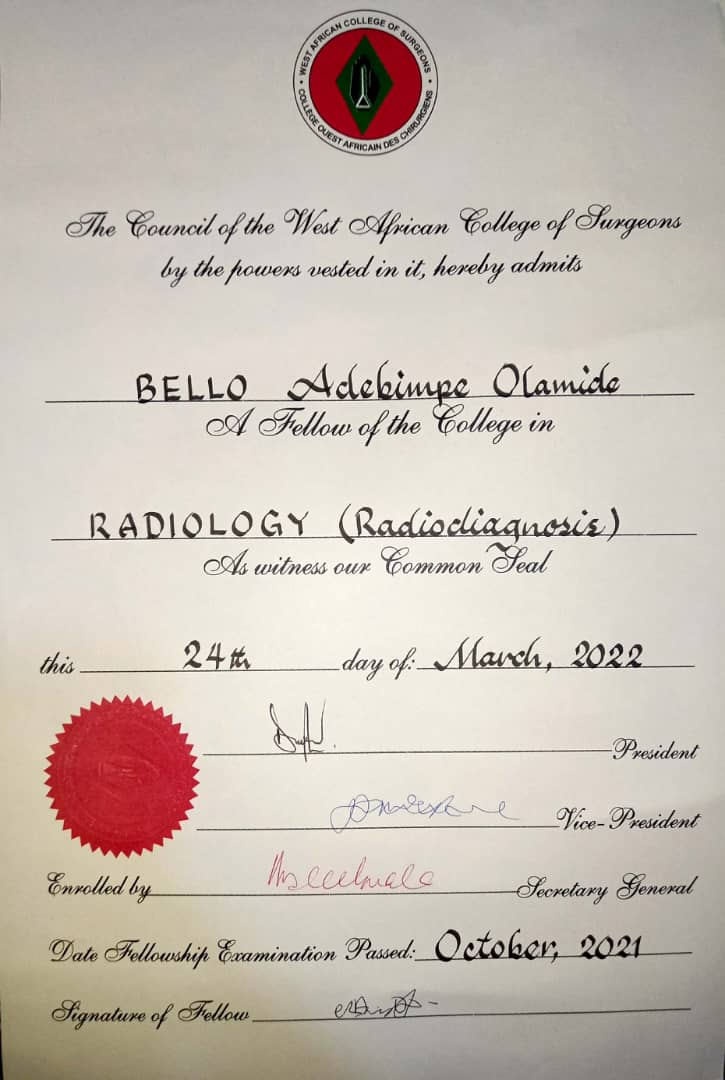 WEST AFRICAN COLLEGE OF SURGEONS
COLLÈGE OUEST AFRICAIN DES CHIRURGIENS
The Council of the West African College of Surgeons
by the powers vested in it, hereby admits
BELLO Adebimpe Olamide
A Fellow of the College in
RADIOLOGY (Radiodiagnosis)
As witness our Common Seal
this 24th day of: March, 2022
President
Vice-President
Enrolled by Secretary General
Date Fellowship Examination Passed: October, 2021
Signature of Fellow